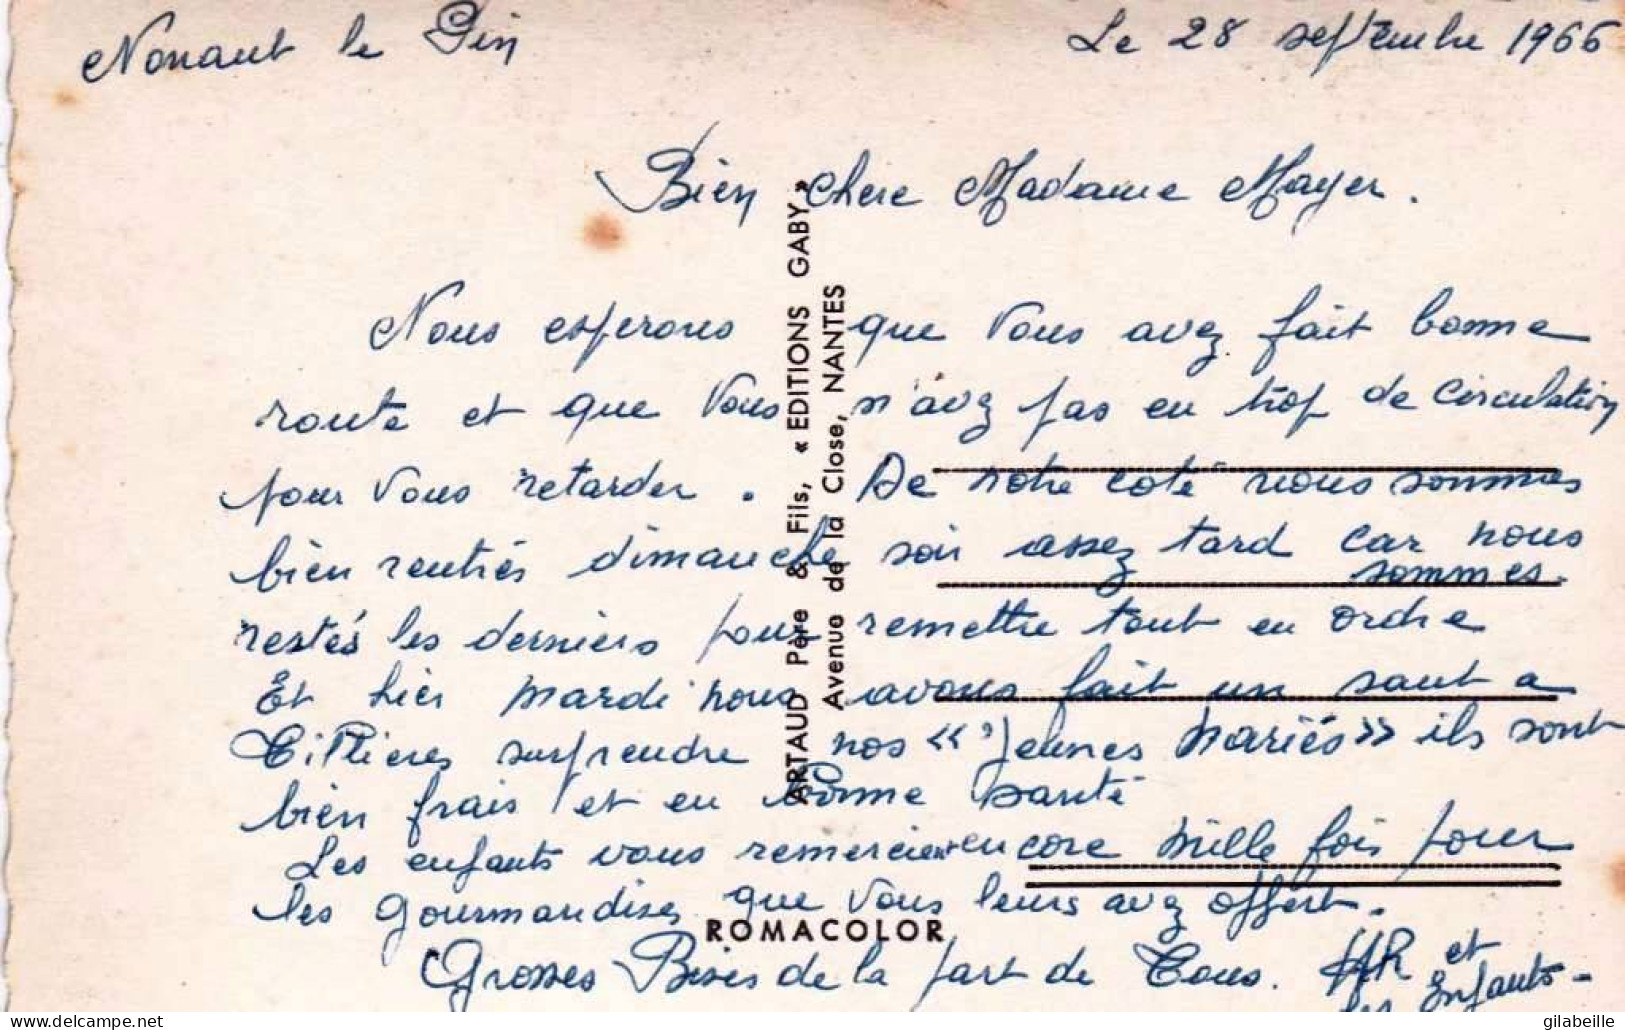 Nonant le Pin
Le 28 septembre 1966
Bien chere Madame Mayer.
Nous esperons que Vous avez fait bonne
route et que Vous n'avez pas eu trop de circulation
pour Vous retarder. De notre coté nous sommes
bien rentrés dimanche soir assez tard car nous
sommes.
restés les derniers pour remettre tout en ordre
Et hier mardi nous avons fait un saut a
Tillieres surprendre nos «Jeunes Mariés» ils sont
bien frais et en bonne santé
Les enfants vous remercient encore mille fois pour
les gourmandises que Vous leurs avez offert.
Grosses Bises de la part de Tous. et
les Enfants-
ARTAUD Père & Fils, « EDITIONS GABY »
Avenue de la Close, NANTES
ROMACOLOR
www.delcampe.net
gilabeille